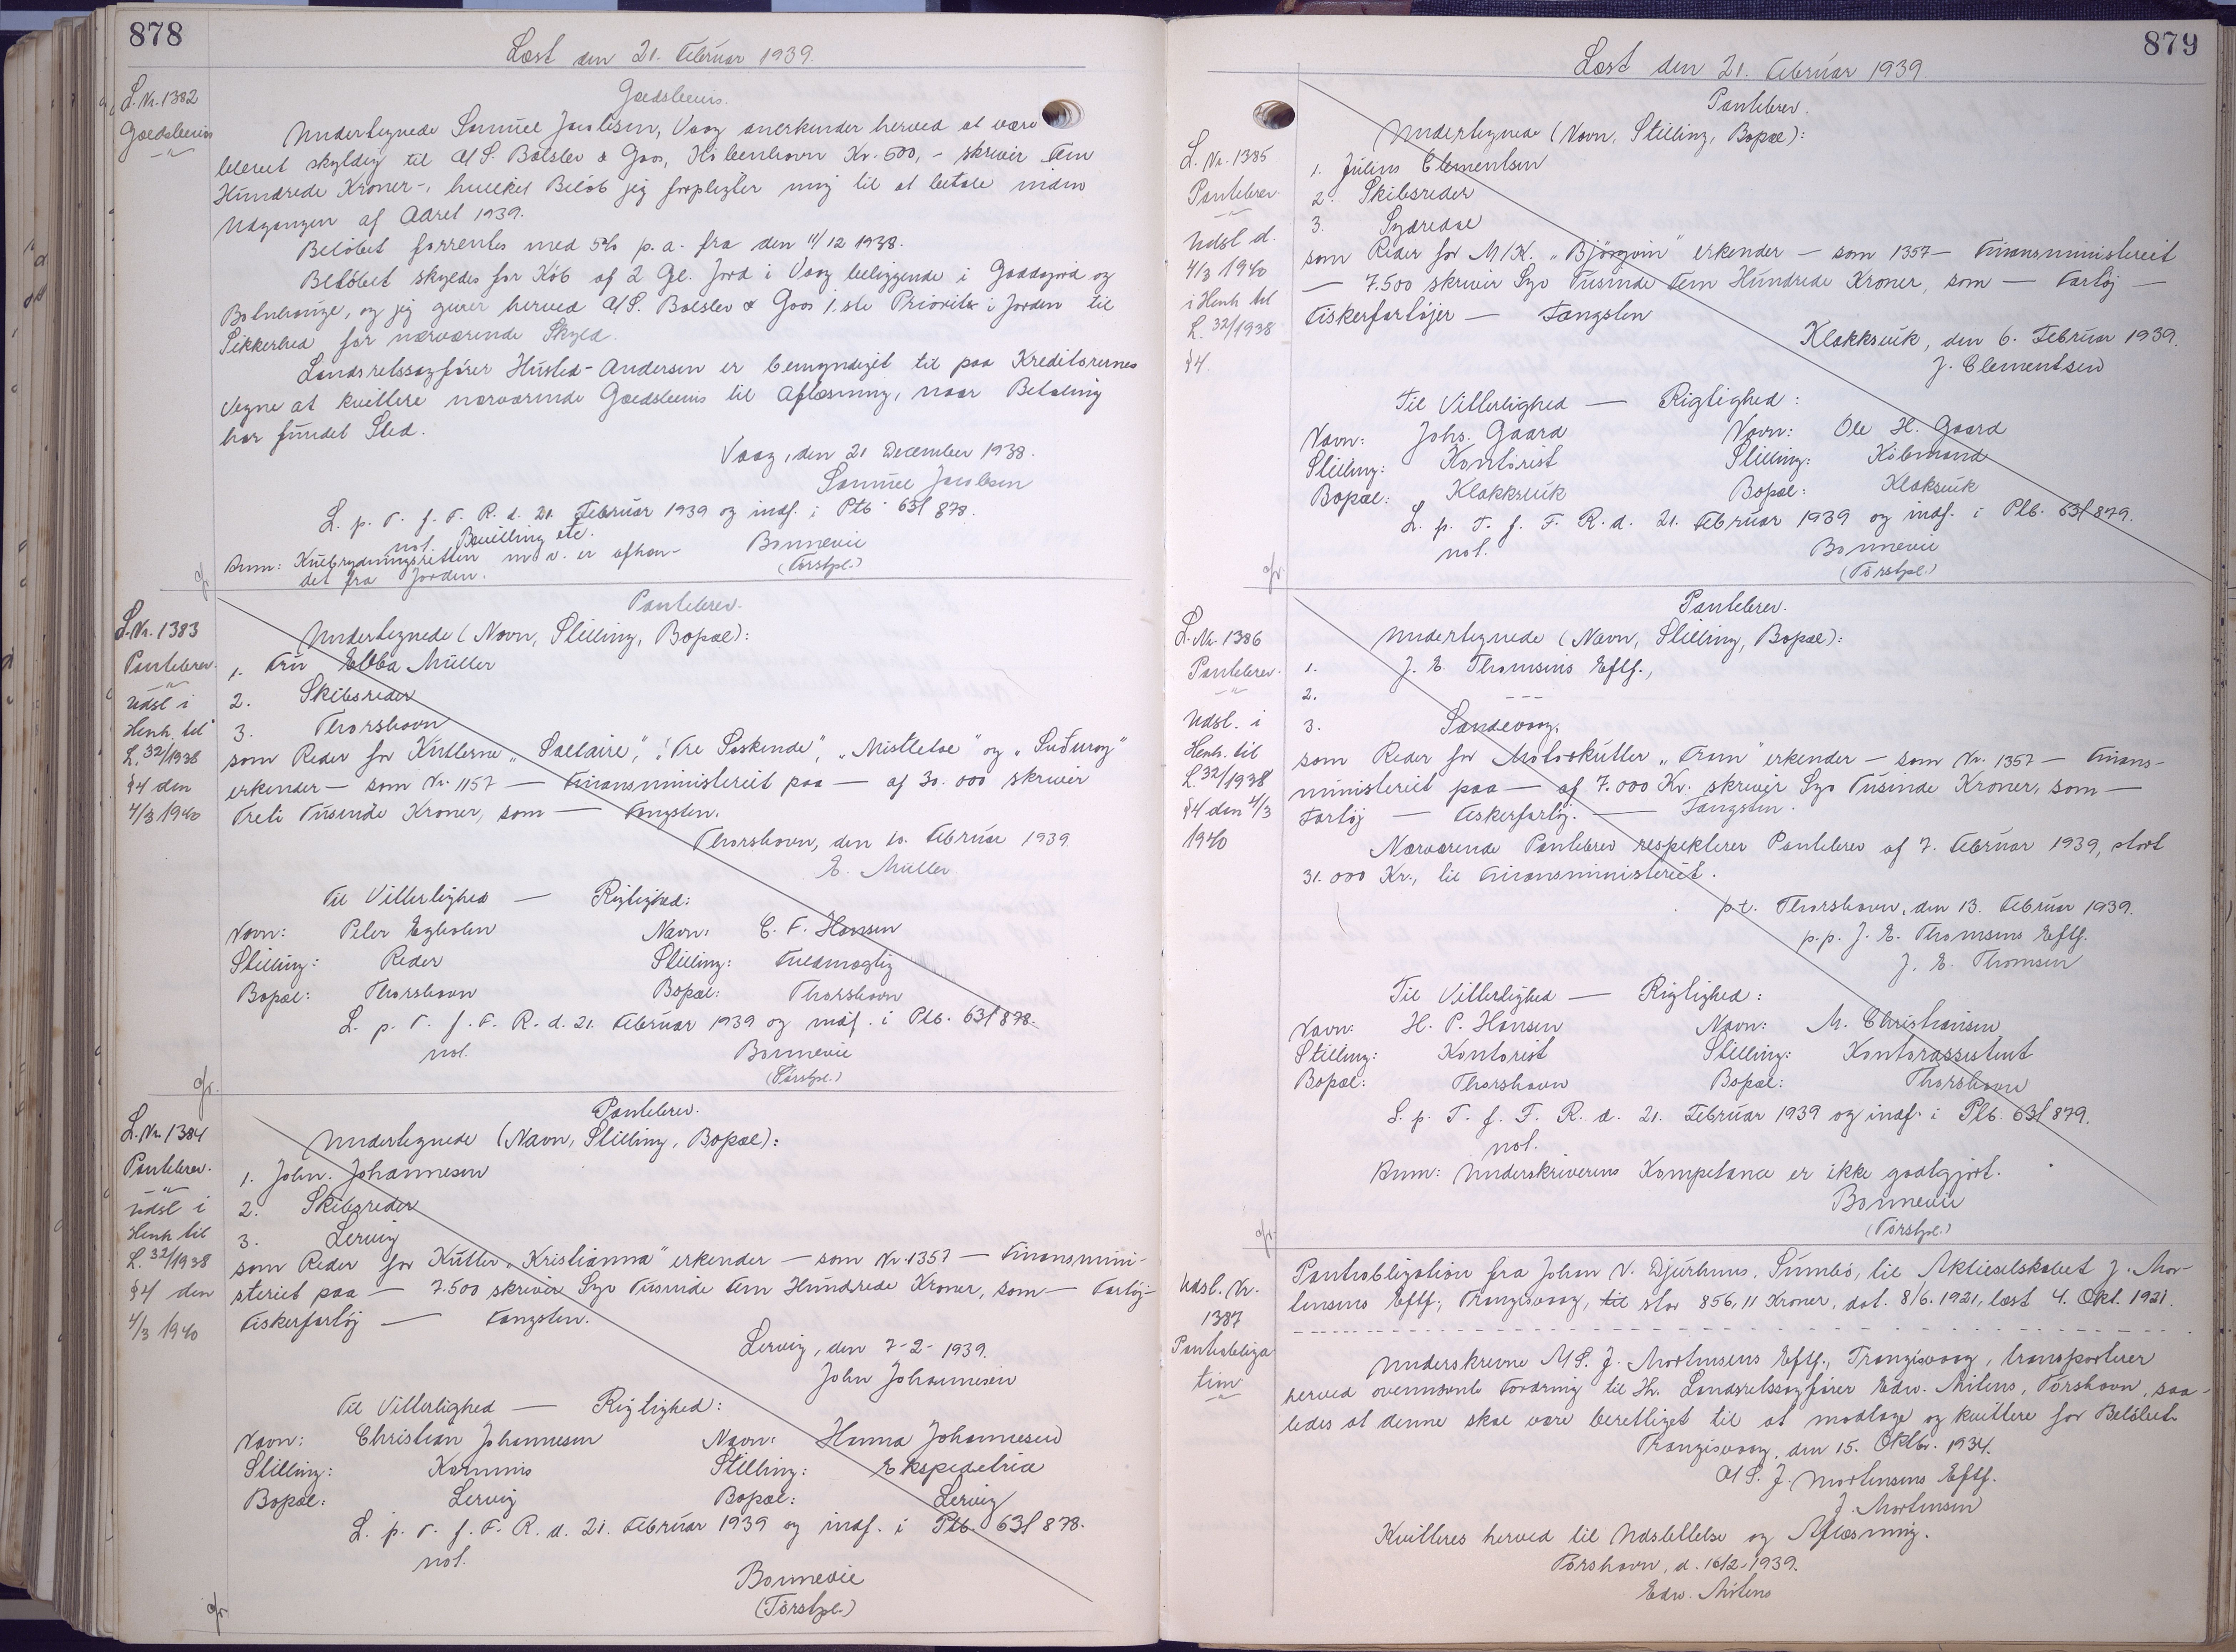 878
Læst den 21. Februar 1939.
L. Nr. 1382
Gældsbevis
Gældsbevis.
Undertegnede Samuel Jacobsen, Vaag anerkender herved at være
blevet skyldig til A/S. Balslev & Goos, København Kr. 500,- skriver Fem
Hundrede Kroner-, hvilket Beløb jeg forpligter mig til at betale inden
Udgangen af Aaret 1939.
Beløbet forrentes med 5% p.a. fra den 11/12 1938.
Beløbet skyldes for Køb af 2 Gl. Jord i Vaag beliggende i og
og jeg giver herved A/S. Balslev & Goos 1.ste Prioritet i Jorden til
Sikkerhed for nærværende Skyld.
Landsretssagfører Husted-Andersen er bemyndiget til paa Kreditorernes
Vegne at kvittere nærværende Gældsbevis til Aflæsning, naar Betaling
har fundet Sted.
Vaag, den 21 December 1938.
Samuel Jacobsen
L. p. T. f. F. R. d. 21. Februar 1939 og indf. i Ptb. 63f 878.
not. Bevilling etc.
Anm: Kulbrydningsretten m. v. er afhæn-
det fra Jorden.
Bonnevie
(Førstpl.)
L. Nr. 1383
Pantebrev.
Udsl i
Henh. til
L. 32/1938
§4 den
4/3 1940
Pantebrev.
Undertegnede (Navn, Stilling, Bopæl):
1. Fru Ebba Müller
2. Skibsreder
3. Thorshavn
som Reder for Kutterne "Soltaire", "Tre Søskende", "Mistletoe" og "Suduroy"
erkender — som Nr. 1157 — Finansministeriet paa — af 30.000 skriver
Treti Tusinde Kroner, som — Fangsten.
Thorshavn, den 10. Februar 1939.
E. Müller
Til Vitterlighed — Rigtighed:
Navn: Peter Egholm Navn: C. F. Hansen
Stilling: Reder Stilling: Fuldmægtig
Bopæl: Thorshavn Bopæl: Thorshavn
L. p. T. f. F. R. d. 21. Februar 1939 og indf. i Ptb. 63f 878.
not. Bonnevie
(Førstpl.)
L. Nr. 1384
Pantebrev.
Udsl i
Henh til
L. 32/1938
§4 den
4/3 1940
Pantebrev.
Undertegnede (Navn, Stilling, Bopæl):
1. John. Johannesen
2. Skibsreder
3. Lervig
som Reder for Kutter "Kristianna" erkender — som Nr. 1357 — Finansmini-
steriet paa — 7.500 skriver Syv Tusinde Fem Hundrede Kroner, som — Fartøj —
Fiskerfartøj — Fangsten.
Lervig, den 7-2-1939.
John Johannesen
Til Vitterlighed — Rigtighed:
Navn: Christian Johannesen Navn: Hanna Johannesen
Stilling: Kommis Stilling: Ekspeditrice
Bopæl: Lervig Bopæl: Lervig
L. p. T. f. F. R. d. 21. Februar 1939 og indf. i Ptb. 63f 878.
not.
Bonnevie
(Førstpl.)
879
Læst den 21. Februar 1939.
L. Nr. 1385
Pantebrev
Udsl d.
4/3 1940
i Henh til
L. 32/1938
§4.
Pantebrev.
Undertegnede (Navn, Stilling, Bopæl):
1. Julius Clementsen
2. Skibsreder
3. Sydredal
som Reder for M/K. "Bjørgvin" erkender — som 1357 — Finansministeriet
— 7.500 skriver Syv Tusinde Fem Hundrede Kroner, som — Fartøj —
Fiskerfartøjer — Fangsten
Klakksvik, den 6. Februar 1939.
J. Clementsen
Til Vitterlighed — Rigtighed:
Navn: Johs. Gaard Navn: Ole H. Gaard
Stilling: Kontorist Stilling: Købmand
Bopæl: Klakksvik Bopæl: Klaksvik
L. p. T. f. F. R. d. 21. Februar 1939 og indf. i Ptb. 63f 879.
not. Bonnevie
(Førstpl.)
L. Nr. 1386
Pantebrev.
Udsl. i
Henh. til
L. 32/1938
§4 den 4/3
1940
Pantebrev.
Undertegnede (Navn, Stilling, Bopæl):
1. J. E. Thomsens Eftf.,
2. ---
3. Sandevaag.
som Reder for Motorkutter "Fram" erkender — som Nr. 1357 — Finans-
ministeriet paa — af 7.000 Kr. skriver Syv Tusinde Kroner, som —
Fartøj — Fiskerfartøj. — Fangsten.
Nærværende Pantebrev respekterer Pantebrev af 7. Februar 1939, stort
31.000 Kr., til Finansministeriet.
p.t. Thorshavn, den 13. Februar 1939.
p.p. J. E. Thomsens Eftf.
J. E. Thomsen
Til Vitterlighed — Rigtighed:
Navn: H. P. Hansen Navn: M. Christiansen
Stilling: Kontorist Stilling: Kontorassistent
Bopæl: Thorshavn Bopæl: Thorshavn
L. p. T. f. F. R. d. 21. Februar 1939 og indf. i Ptb. 63f 879.
not.
Anm: Underskriverens Kompetance er ikke godtgjort.
Bonnevie
(Førstpl.)
Udsl. Nr.
1387
Pantobliga-
tion
Pantobligation fra Johan V. Djurhuus, Sumbø, til Aktieselskabet J. Mor-
tensens Eftf., Trangisvaag, til stor 856,11 Kroner, dat. 8/6. 1921, læst 4. Okt. 1921.
Underskrevne A/S. J. Mortensens Eftf., Trangisvaag, transporterer
herved ovennævnte Fordring til Hr. Landsretssagfører Edw. Mitens, Tórshavn, saa-
ledes at denne skal være berettiget til at modtage og kvittere for Beløbet.
Trangisvaag, den 15. Oktbr. 1934.
A/S. J. Mortensens Eftf.
J. Mortensen
Kvitteres herved til Udslettelse og Aflæsning.
Tórshavn, d. 16/2-1939.
Edw. Mitens